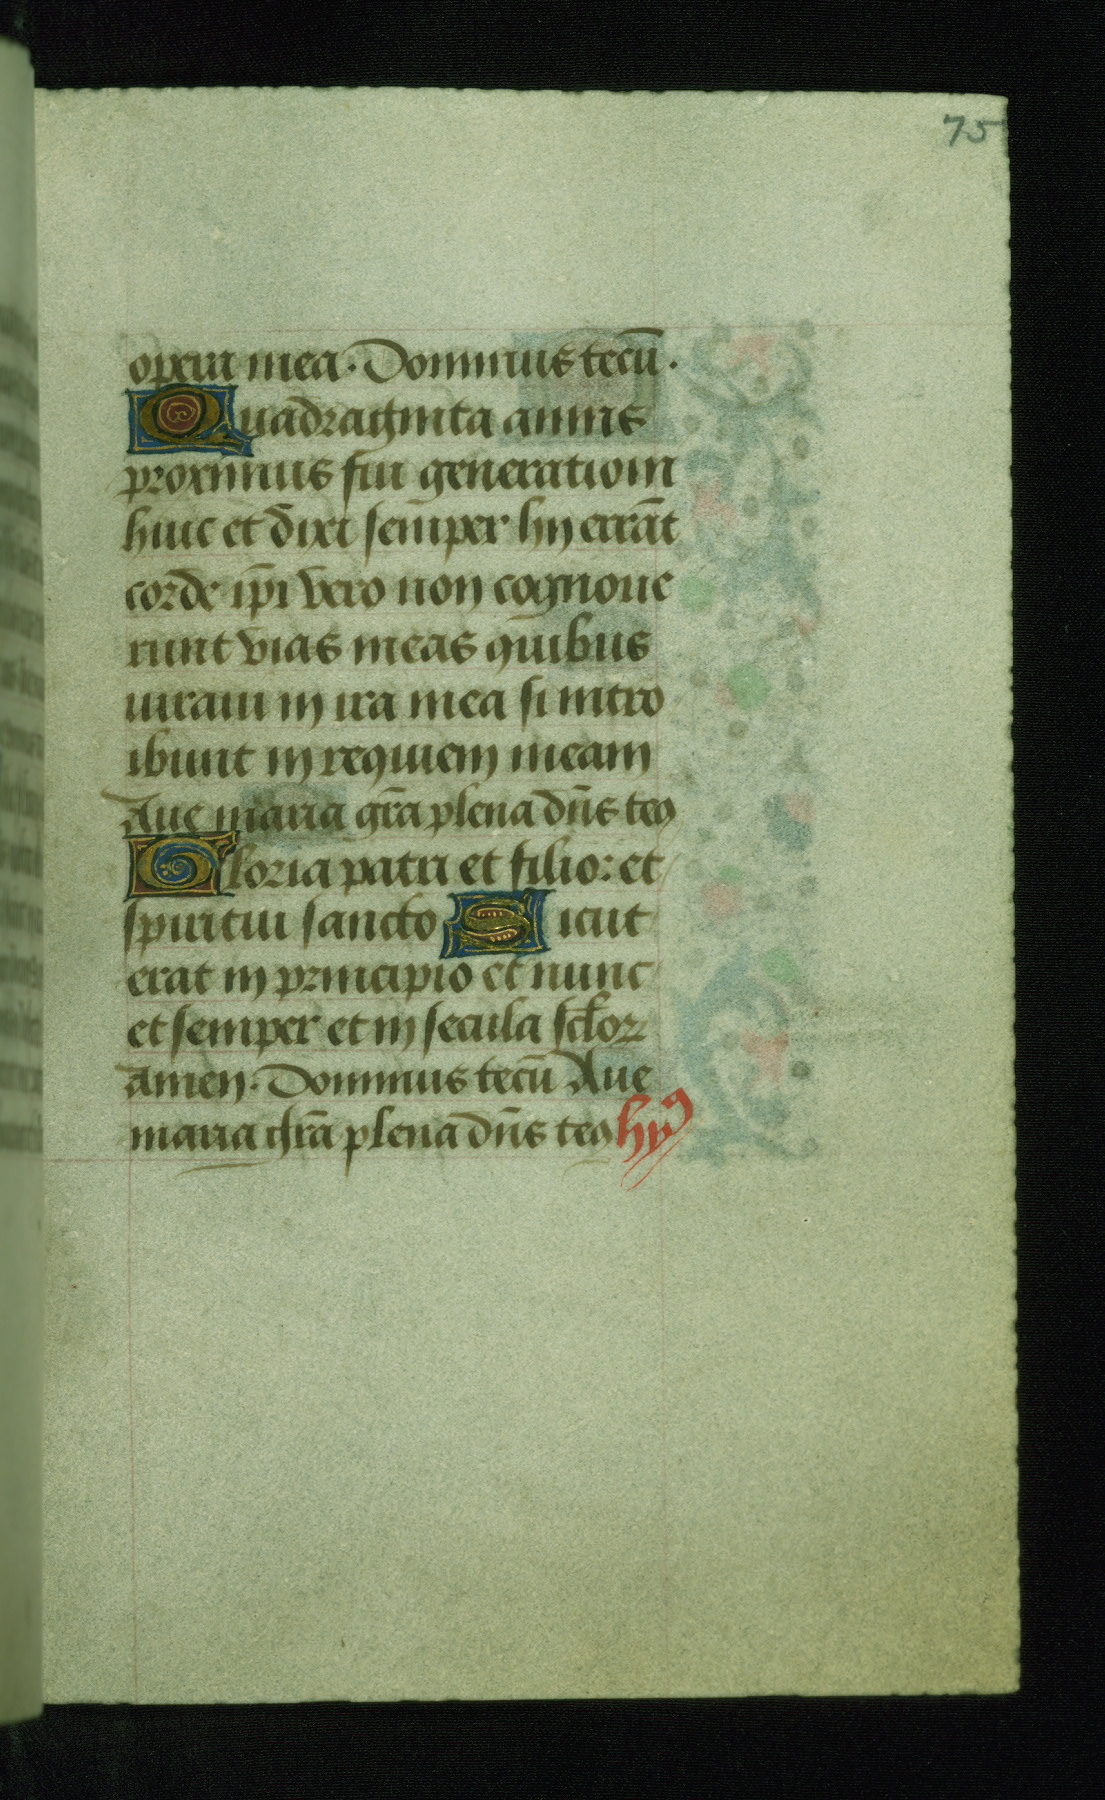 75
opera mea. Dominus tecū.
Quadraginta annis
proximus fui generationi
huic et dixi semper hij errāt
corde ip̄i vero non cognoue
runt vias meas quibus
iuraui in ira mea si intro
ibunt in requiem meam
Aue maria gr̄a plena dn̄s tecꝫ
Gloria patri et filio: et
spiritui sancto Sicut
erat in principio et nunc
et semper et in secula sc̄lorꝝ
amen. Dominus tecū Aue
maria gr̄a plena dn̄s tecꝫ